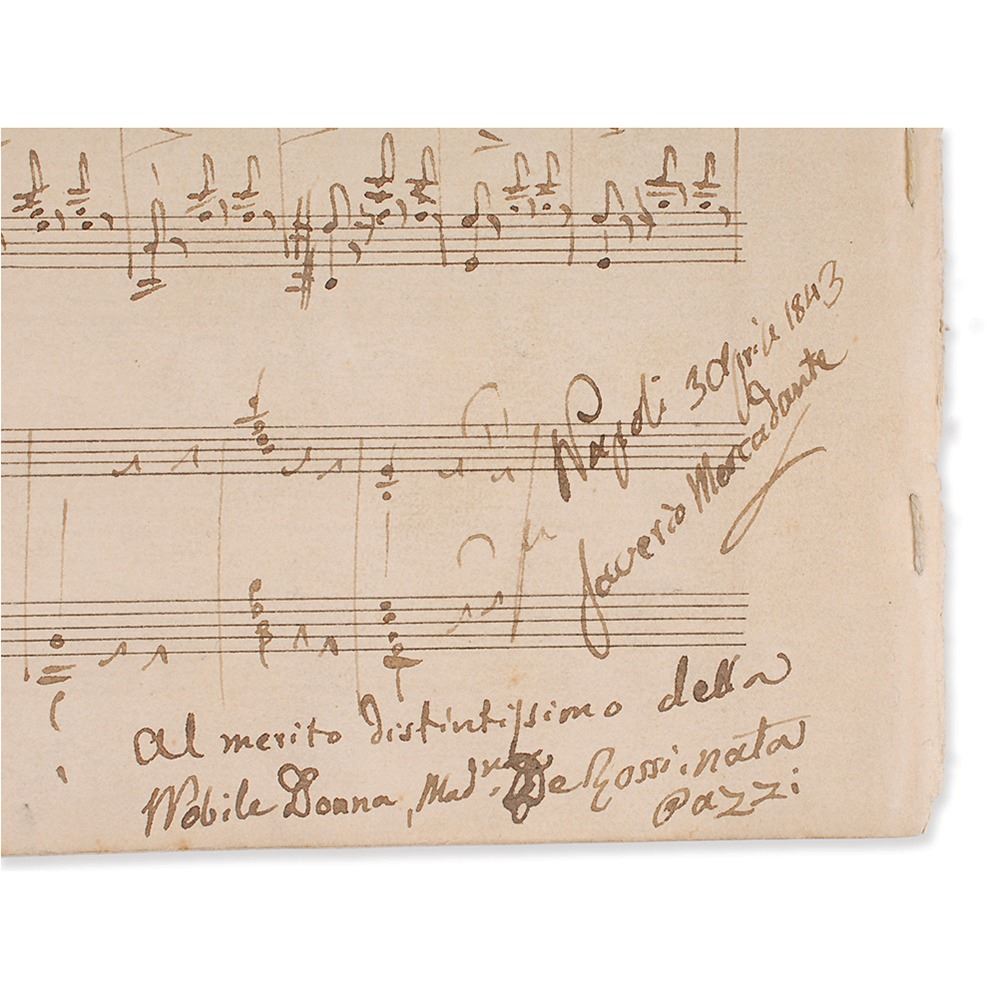 Napoli 3 Aprile 1843
Saverio Mercadante
Al merito distintissimo della
Nobile Donna, Mad.ma De Rossi, nata
Pazzi